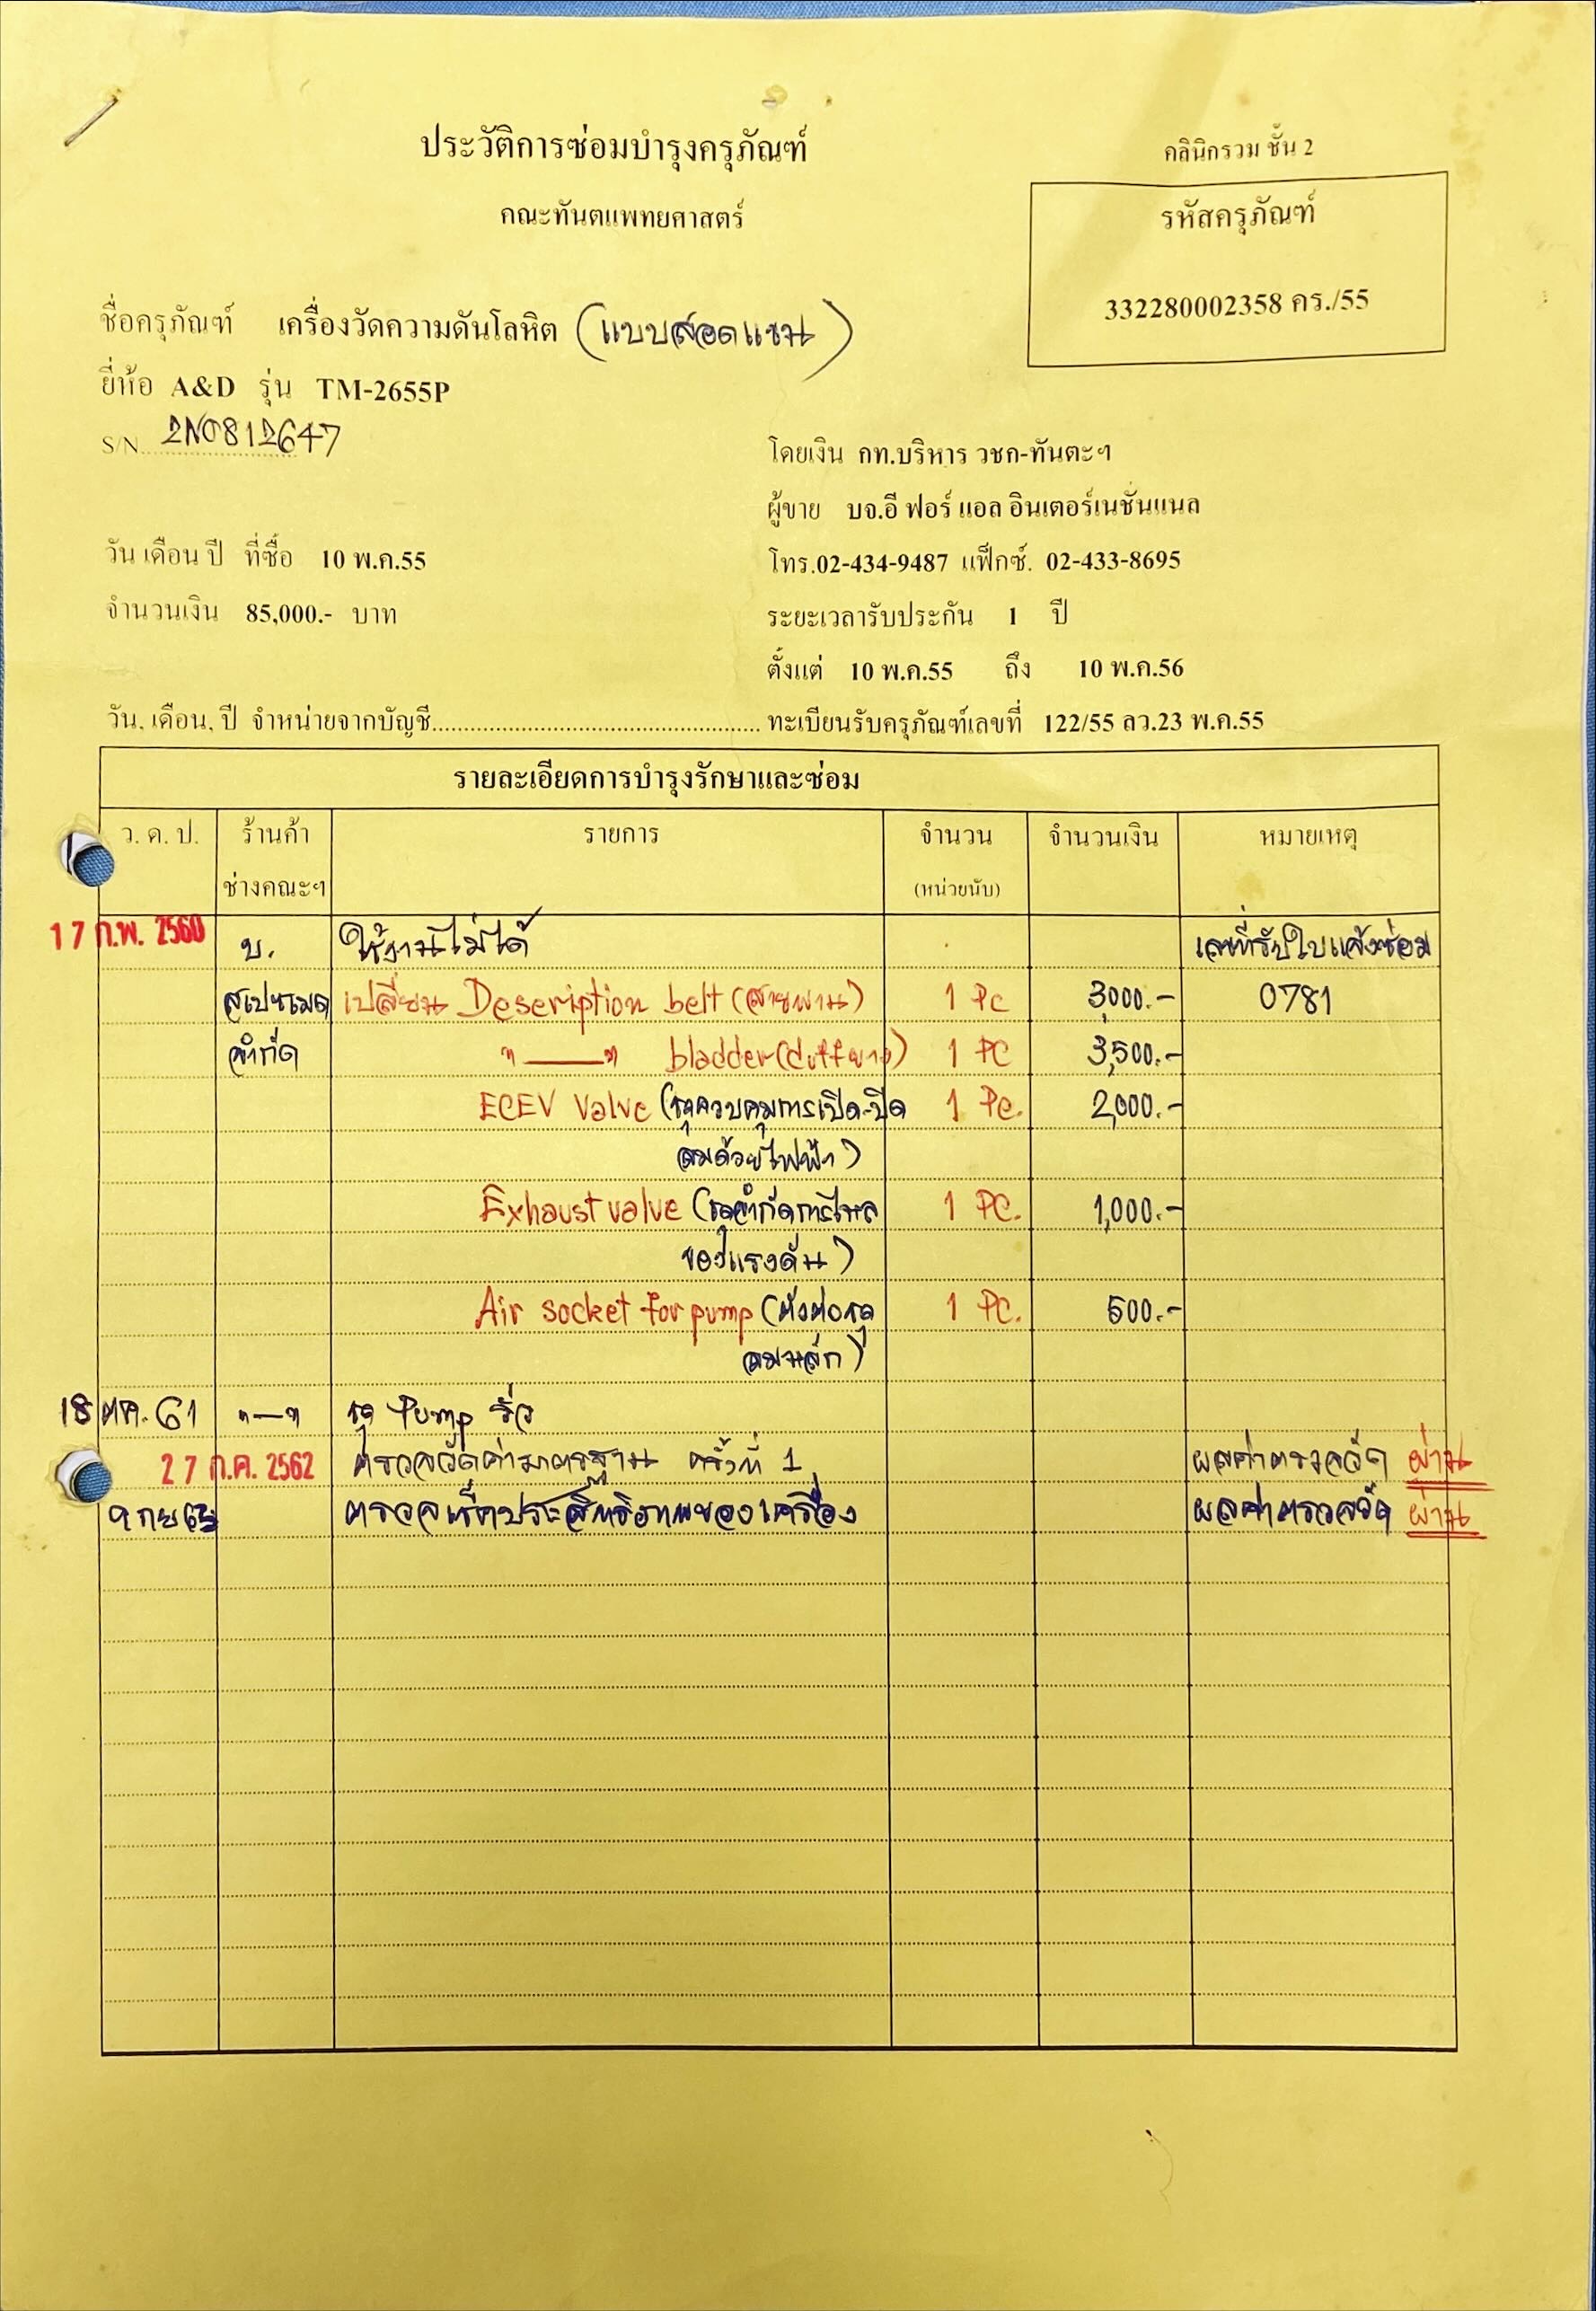 ประวัติการซ่อมบำรุงครุภัณฑ์
คลินิกรวม ชั้น 2
คณะทันตแพทยศาสตร์
รหัสครุภัณฑ์
332280002358 คร./55
ชื่อครุภัณฑ์ เครื่องวัดความดันโลหิต (แบบสอดแขน)
ยี่ห้อ A&D รุ่น TM-2655P
S/N. 2N0812647
โดยเงิน กท.บริหาร วชก-ทันตะฯ
ผู้ขาย บจ.อี ฟอร์ แอล อินเตอร์เนชั่นแนล
วัน เดือน ปี ที่ซื้อ 10 พ.ค.55
โทร.02-434-9487 แฟ็กซ์. 02-433-8695
จำนวนเงิน 85,000.- บาท
ระยะเวลารับประกัน 1 ปี
ตั้งแต่ 10 พ.ค.55 ถึง 10 พ.ค.56
วัน, เดือน, ปี จำหน่ายจากบัญชี........ ทะเบียนรับครุภัณฑ์เลขที่ 122/55 ลว.23 พ.ค.55
รายละเอียดการบำรุงรักษาและซ่อม
ว. ด. ป. ร้านค้า รายการ จำนวน จำนวนเงิน หมายเหตุ
ช่างคณะฯ (หน่วยนับ)
17 ก.พ. 2560 บ. ใช้งานไม่ได้ เลขที่รับใบแจ้งซ่อม
เปลี่ยน Deseription belt (สายพาน) 1 Pc 3,000.- 0781
จำกัด "——" bladder 1 PC 3,500.-
ECEV Valve (ชุดควบคุมการเปิด-ปิด 1 Pc. 2,000.-
ลมด้วยไฟฟ้า)
Exhaust valve (ชุดจำกัดการไหล 1 PC. 1,000.-
ของแรงดัน)
Air socket for pump (ตัวต่อชุด 1 PC. 500.-
ลมหลัก)
18 ตค. 61 "—" ชุด Pump รั่ว
27 ก.ค. 2562 ตรวจวัดค่ามาตรฐาน ครั้งที่ 1 ผลค่าตรวจวัด ผ่าน
9 กย ตรวจเช็คประสิทธิภาพของเครื่อง ผลค่าตรวจวัด ผ่าน